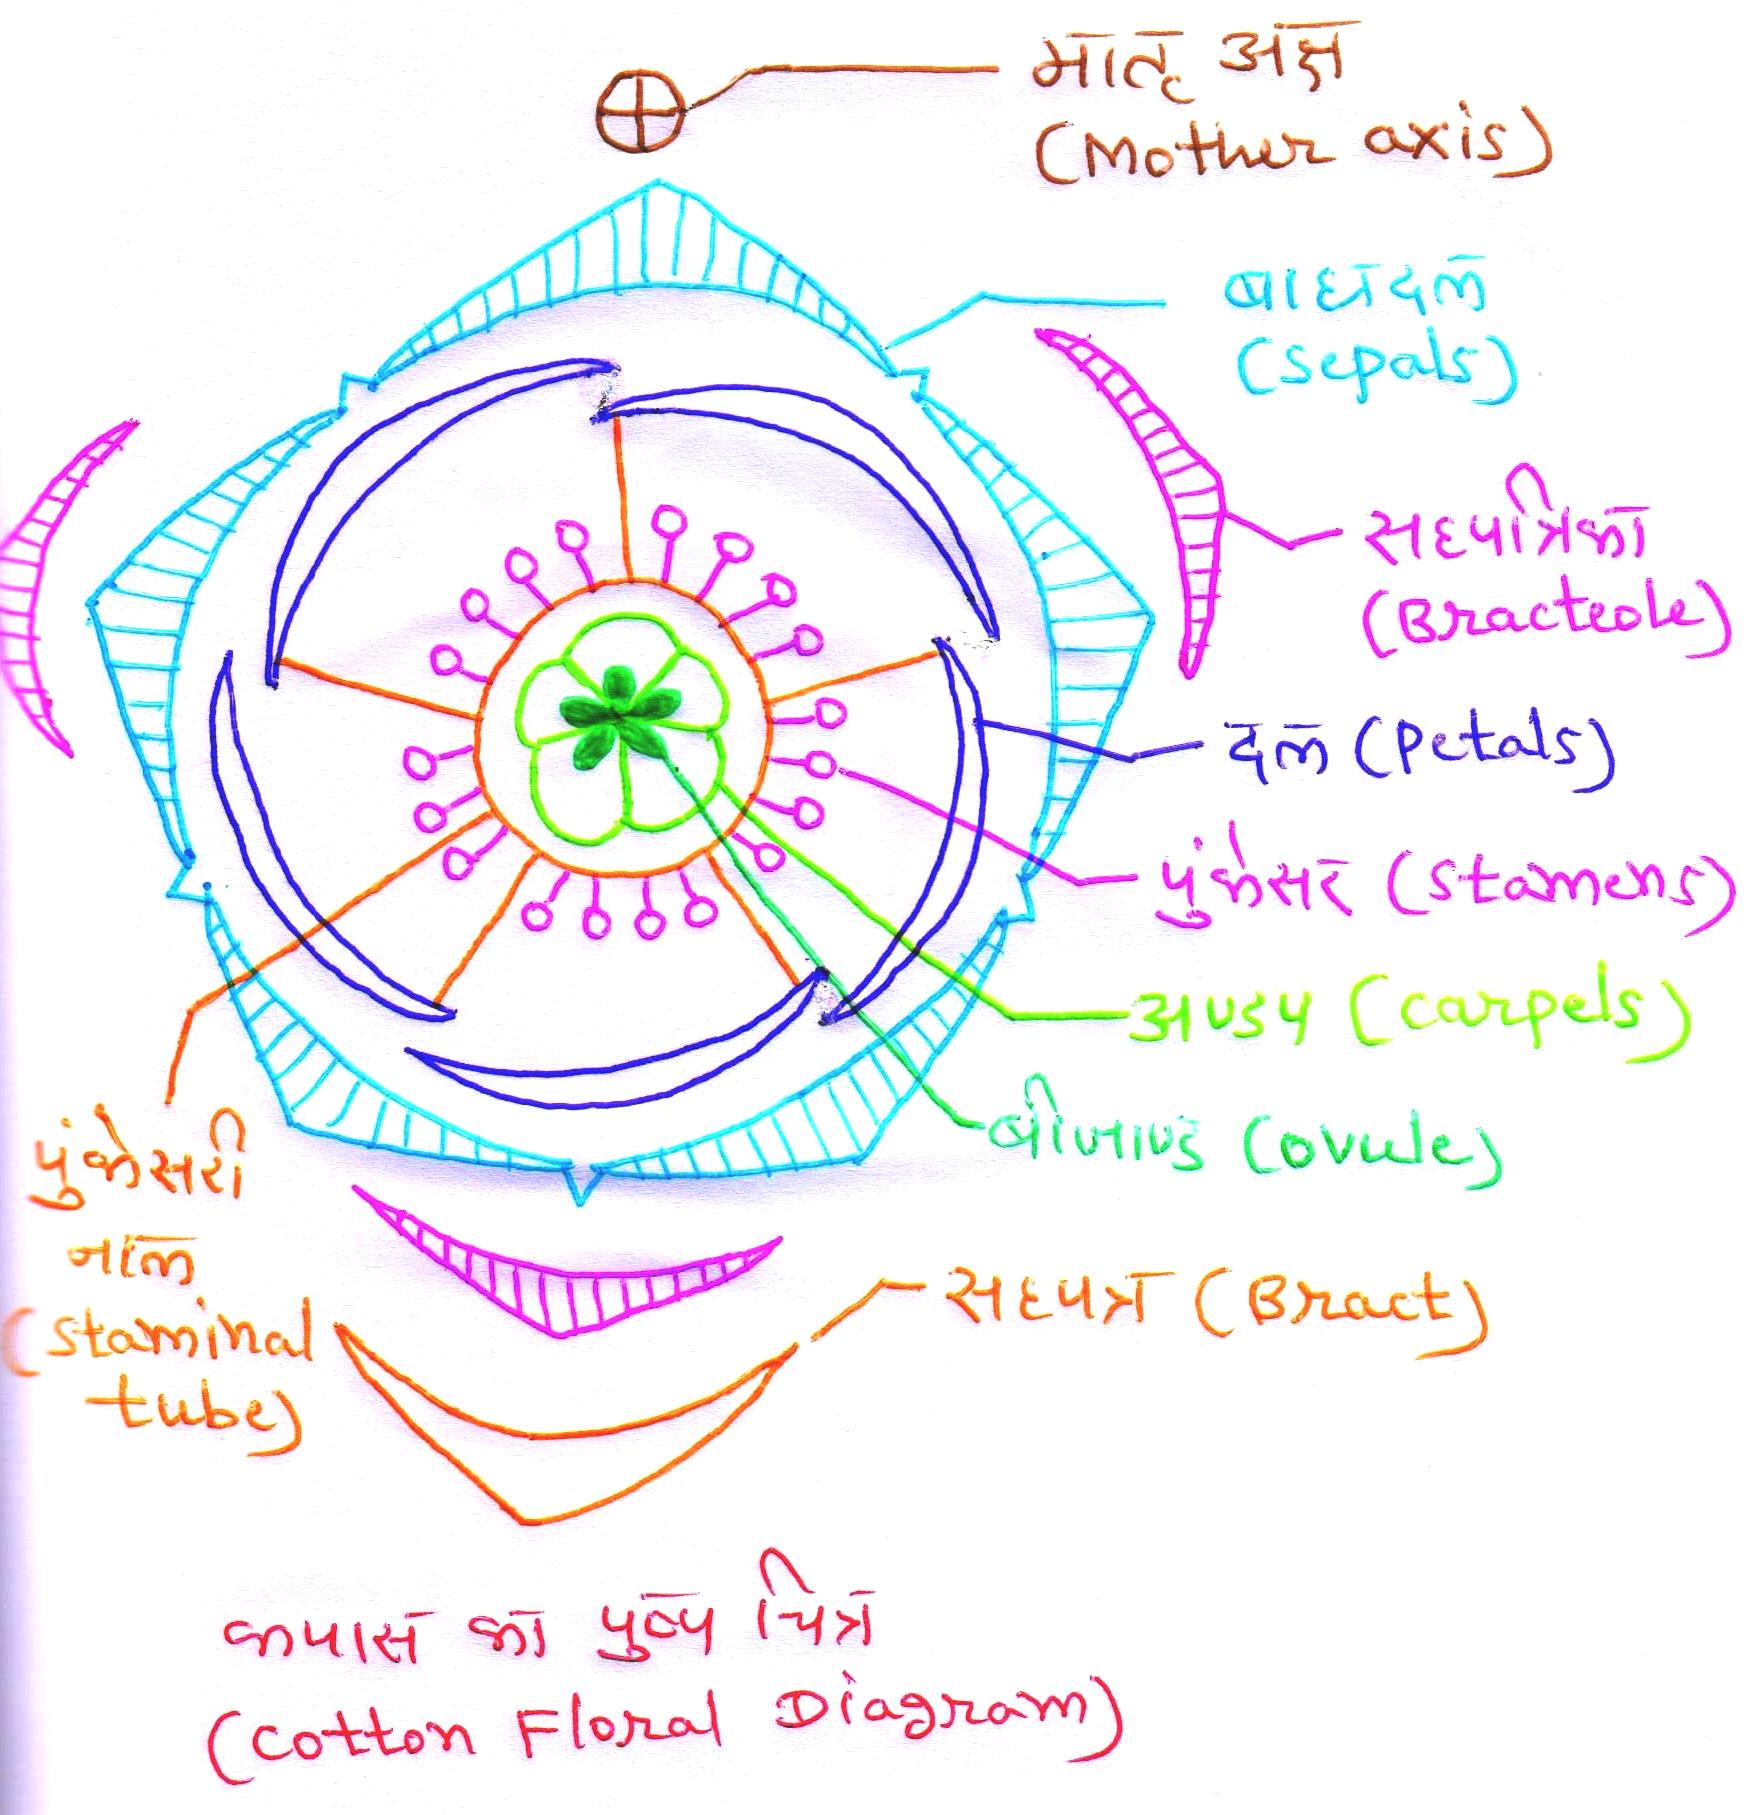 मातृ अक्ष
(Mother axis)
बाह्यदल
(sepals)
सहपत्रिका
(Bracteole)
दल (Petals)
पुंकेसर (stamens)
अण्डप (carpels)
बीजाण्ड (ovule)
पुंकेसरी
नाल
(staminal
tube)
सहपत्र (Bract)
कपास का पुष्प चित्र
(cotton Floral Diagram)